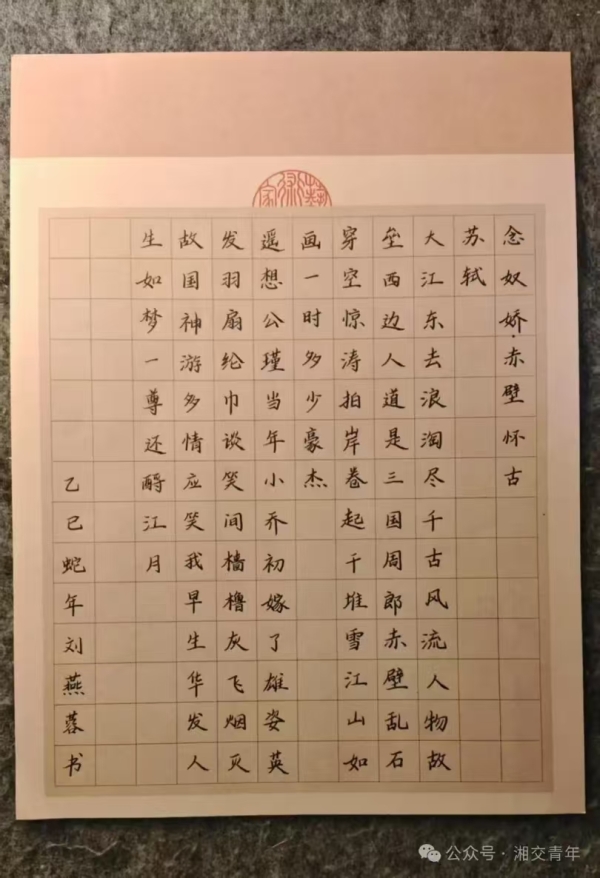 念奴娇·赤壁怀古
苏轼
大江东去浪淘尽千古风流人物故
垒西边人道是三国周郎赤壁乱石
穿空惊涛拍岸卷起千堆雪江山如
画一时多少豪杰
遥想公瑾当年小乔初嫁了雄姿英
发羽扇纶巾谈笑间樯橹灰飞烟灭
故国神游多情应笑我早生华发人
生如梦一尊还酹江月
乙巳蛇年刘燕蓉书
公众号·湘交青年